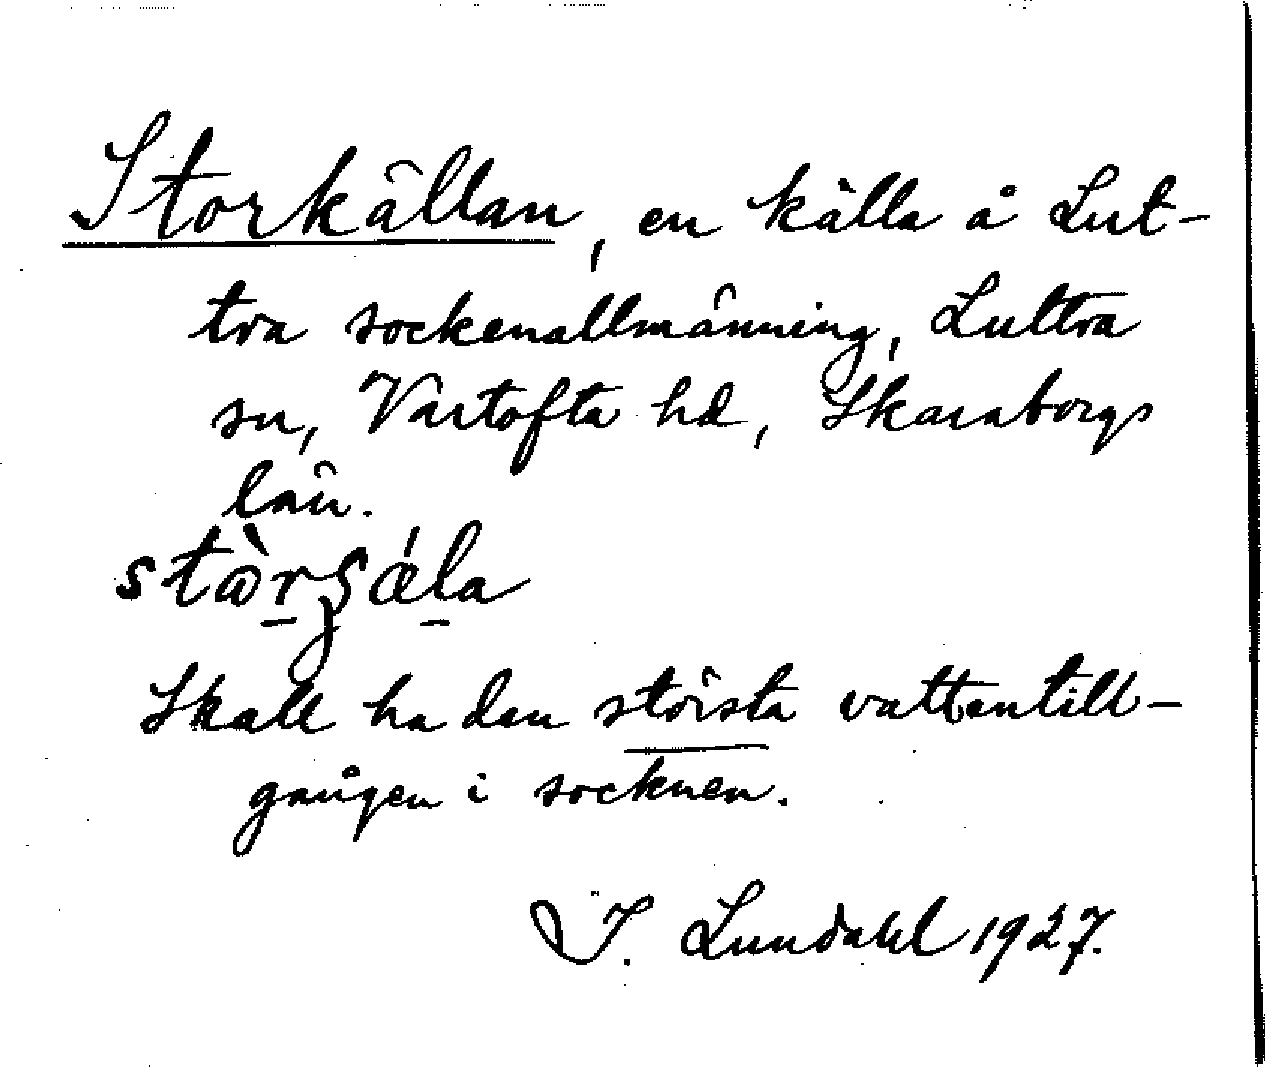 Storkällan, en källa å Lut-
tra sockenallmänning, Luttra
sn, Vartofta hd, Skaraborgs
län.
Skall ha den största vattentill-
gången i socknen.
I. Lundahl 1927.